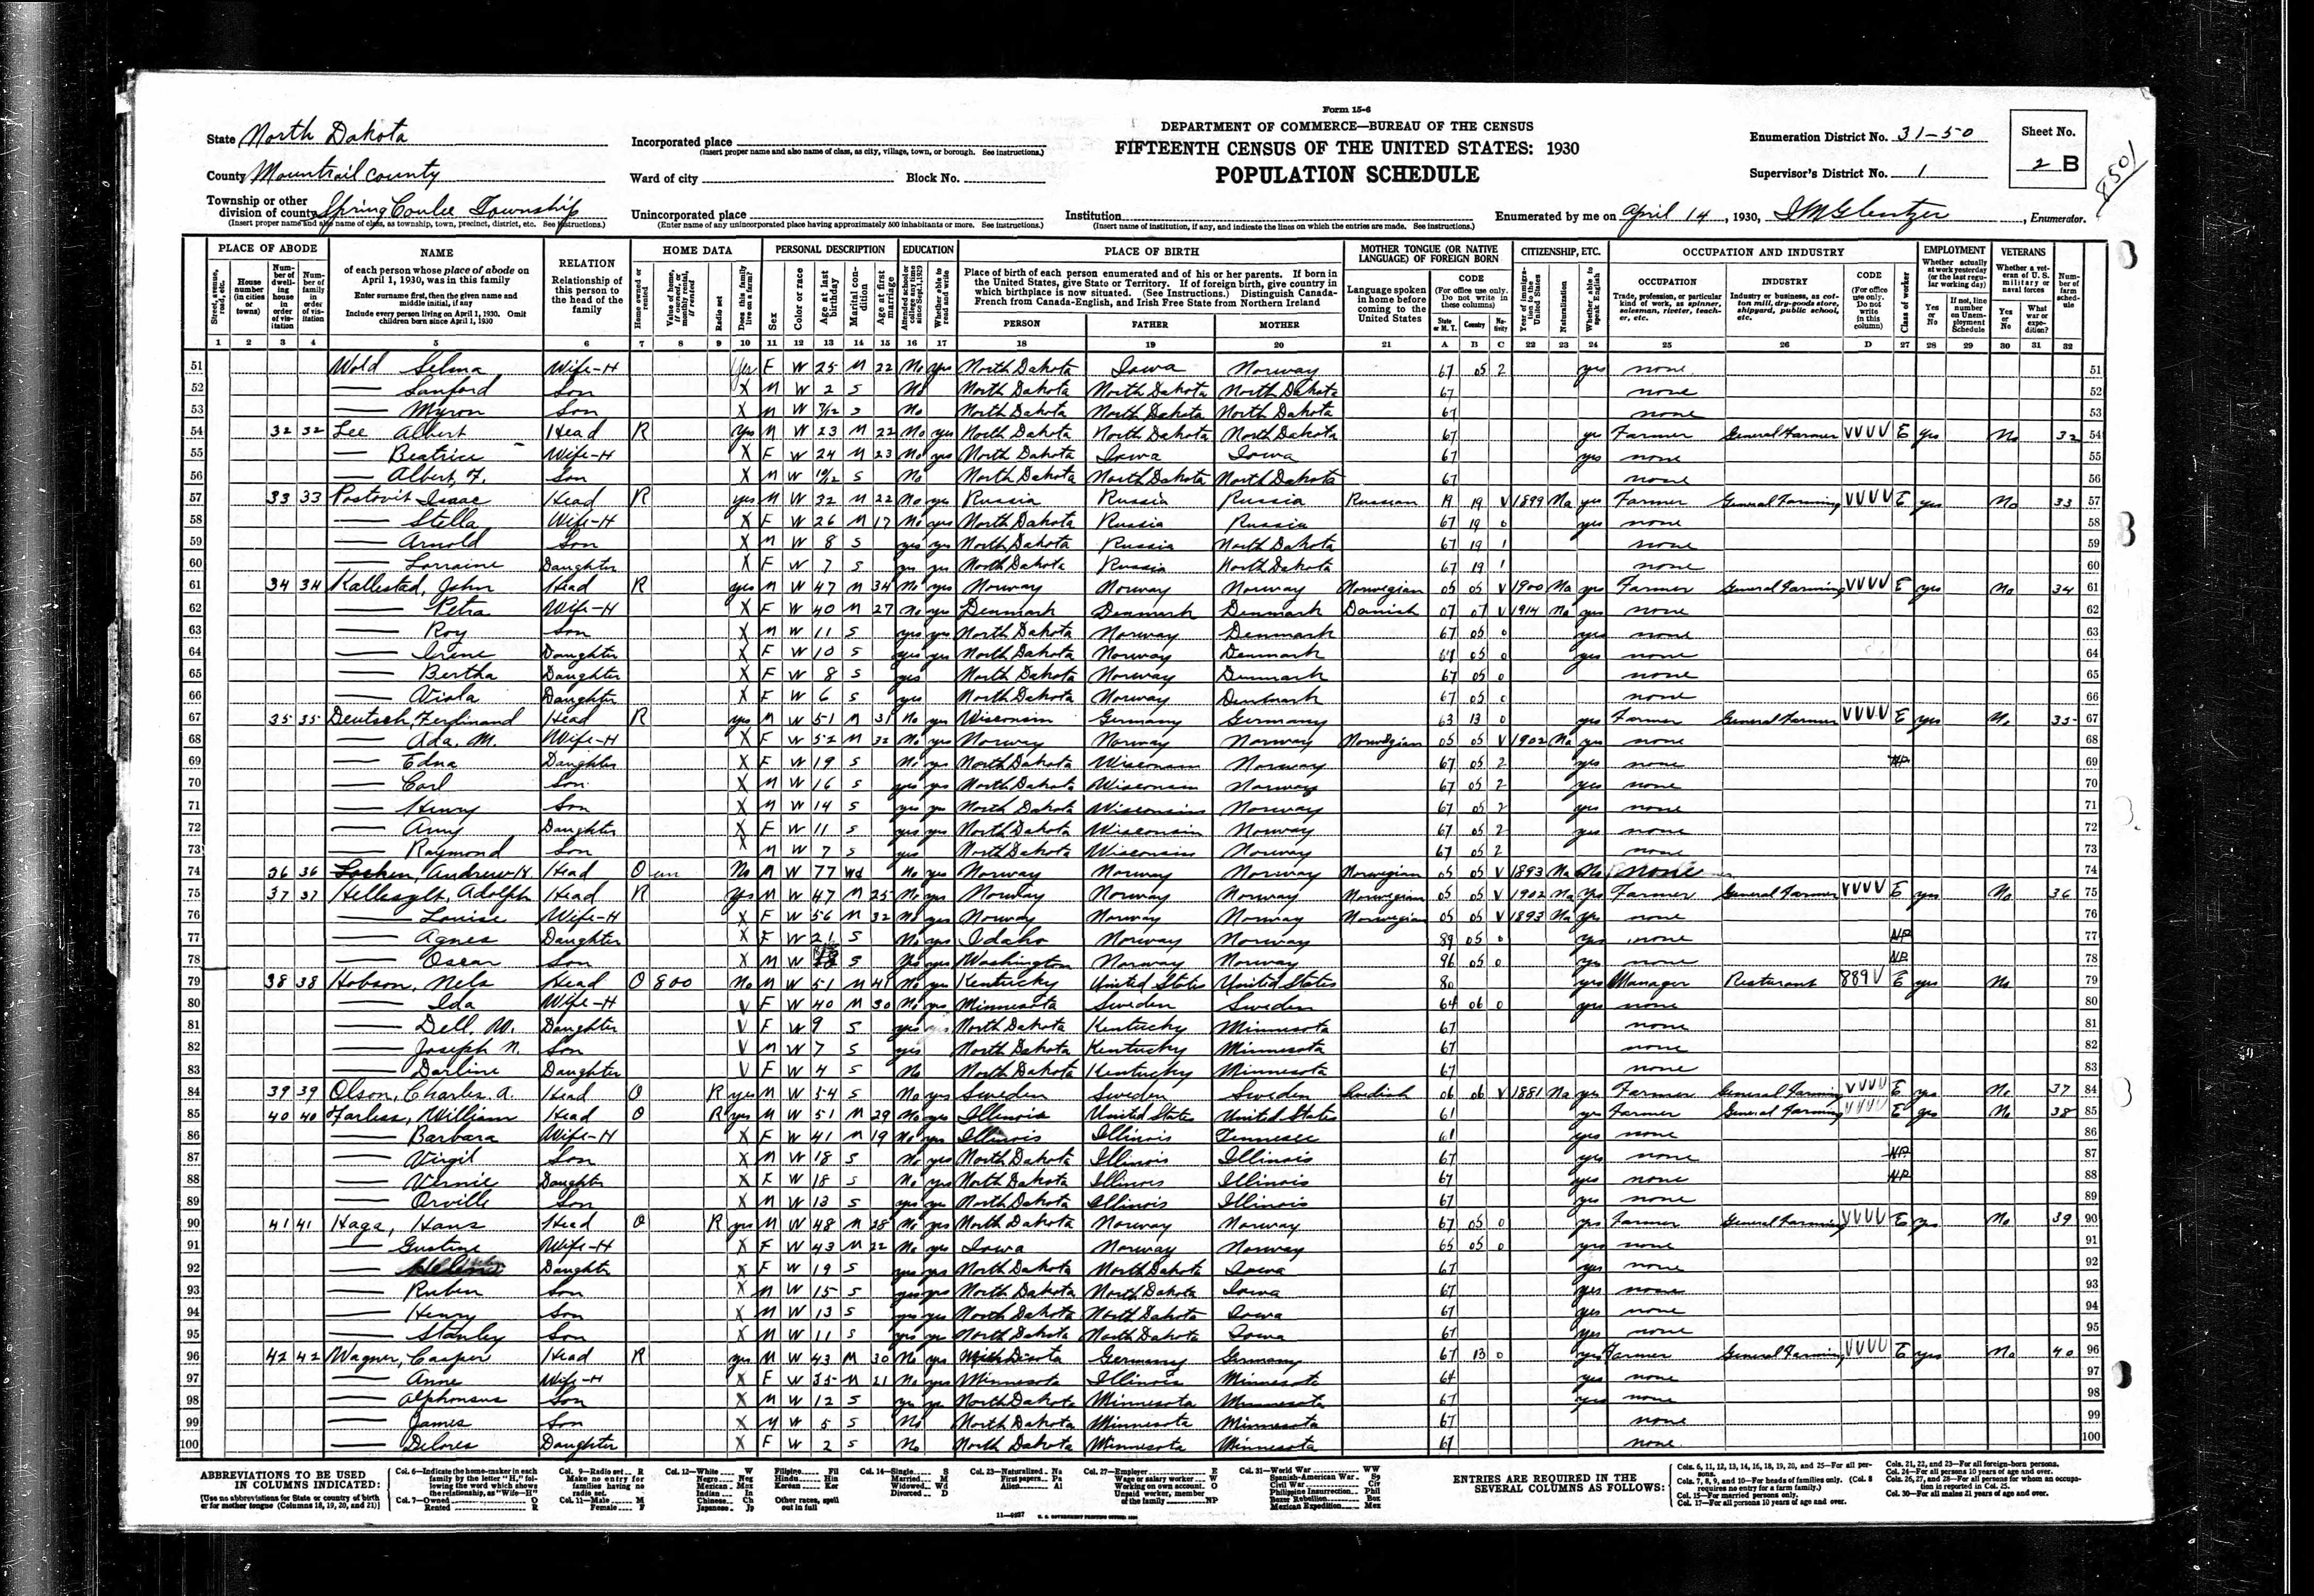 Form 15-6
DEPARTMENT OF COMMERCE—BUREAU OF THE CENSUS
FIFTEENTH CENSUS OF THE UNITED STATES: 1930
POPULATION SCHEDULE
State North Dakota
County Mountrail county
Township or other division of county Spring Coulee Township
(Insert proper name and also name of class, as township, town, precinct, district, etc. See instructions.)
Incorporated place
(Insert proper name and also name of class, as city, village, town, or borough. See instructions.)
Ward of city Block No.
Unincorporated place
(Enter name of any unincorporated place having approximately 500 inhabitants or more. See instructions.)
Institution
(Insert name of institution, if any, and indicate the lines on which the entries are made. See instructions.)
Enumeration District No. 31-50
Supervisor's District No. 1
Sheet No. 2 B
Enumerated by me on April 14, 1930, Enumerator.
PLACE OF ABODE NAME RELATION HOME DATA PERSONAL DESCRIPTION EDUCATION PLACE OF BIRTH MOTHER TONGUE (OR NATIVE LANGUAGE) OF FOREIGN BORN CITIZENSHIP, ETC. OCCUPATION AND INDUSTRY EMPLOYMENT VETERANS
1 2 3 4 5 6 7 8 9 10 11 12 13 14 15 16 17 18 19 20 21 A B C 22 23 24 25 26 D 27 28 29 30 31 32
51 Wold Selma Wife-H Yes F W 25 M 22 No yes North Dakota Iowa Norway 67 05 2 yes none 51
52 Sanford Son X M W 2 S No North Dakota North Dakota North Dakota 67 none 52
53 Myron Son X M W 7/12 S No North Dakota North Dakota North Dakota 67 none 53
54 32 32 Lee Albert Head R Yes M W 23 M 22 No yes North Dakota North Dakota North Dakota 67 yes Farmer General Farmer VVVV E yes No 32 54
55 Beatrice Wife-H X F W 24 M 23 No yes North Dakota Iowa Iowa 67 yes none 55
56 Albert, F. Son X M W 10/12 S No North Dakota North Dakota North Dakota 67 none 56
57 33 33 Postovit Isaac Head R yes M W 32 M 22 No yes Russia Russia Russia Russian 19 19 V 1899 Na yes Farmer General Farming VVVV E yes No 33 57
58 Stella Wife-H X F W 26 M 17 No yes North Dakota Russia Russia 67 19 0 yes none 58
59 Arnold Son X M W 8 S yes yes North Dakota Russia North Dakota 67 19 1 none 59
60 Lorraine Daughter X F W 7 S yes yes North Dakota Russia North Dakota 67 19 1 none 60
61 34 34 Kallestad, John Head R yes M W 47 M 34 No yes Norway Norway Norway Norwegian 05 05 V 1900 Na yes Farmer General Farming VVVV E yes No 34 61
62 Petra Wife-H X F W 40 M 27 No yes Denmark Denmark Denmark Danish 07 07 V 1914 Na yes none 62
63 Roy Son X M W 11 S yes yes North Dakota Norway Denmark 67 05 0 yes none 63
64 Irene Daughter X F W 10 S yes yes North Dakota Norway Denmark 67 05 0 yes none 64
65 Bertha Daughter X F W 8 S yes North Dakota Norway Denmark 67 05 0 none 65
66 Viola Daughter X F W 6 S yes North Dakota Norway Denmark 67 05 0 none 66
67 35 35 Deutsch, Ferdinand Head R yes M W 51 M 31 No yes Wisconsin Germany Germany 63 13 0 yes Farmer General Farmer VVVV E yes No 35 67
68 Ada. M. Wife-H X F W 52 M 32 No yes Norway Norway Norway Norwegian 05 05 V 1902 Na yes none 68
69 Edna Daughter X F W 19 S No yes North Dakota Wisconsin Norway 67 05 2 yes none NP 69
70 Carl Son X M W 16 S yes yes North Dakota Wisconsin Norway 67 05 2 yes none 70
71 Henry Son X M W 14 S yes yes North Dakota Wisconsin Norway 67 05 2 yes none 71
72 Amy Daughter X F W 11 S yes yes North Dakota Wisconsin Norway 67 05 2 yes none 72
73 Raymond Son X M W 7 S yes North Dakota Wisconsin Norway 67 05 2 none 73
74 36 36 Andrew H. Head O un No M W 77 Wd No yes Norway Norway Norway Norwegian 05 05 V 1893 Na No none 74
75 37 37 Adolph Head R Yes M W 47 M 25 No yes Norway Norway Norway Norwegian 05 05 V 1902 Na Yes Farmer General Farmer VVVV E yes No 36 75
76 Louise Wife-H X F W 56 M 32 No yes Norway Norway Norway Norwegian 05 05 V 1893 Na yes none 76
77 Agnes Daughter X F W 21 S No yes Idaho Norway Norway 89 05 0 Yes none NP 77
78 Oscar Son X M W 18 S No yes Washington Norway Norway 96 05 0 yes none NP 78
79 38 38 Hobson, Nels Head O 800 No M W 51 M 41 No yes Kentucky United States United States 80 yes Manager Resturant 889V E yes No 79
80 Ida Wife-H V F W 40 M 30 No yes Minnesota Sweden Sweden 64 06 0 yes none 80
81 Dell. M. Daughter V F W 9 S yes yes North Dakota Kentucky Minnesota 67 none 81
82 Joseph N. Son V M W 7 S yes North Dakota Kentucky Minnesota 67 none 82
83 Darline Daughter V F W 4 S No North Dakota Kentucky Minnesota 67 none 83
84 39 39 Olson, Charles. A. Head O R yes M W 54 S No yes Sweden Sweden Sweden Swedish 06 06 V 1881 Na yes Farmer General Farming VVVV E yes No 37 84
85 40 40 Farless, William Head O R yes M W 51 M 29 No yes Illinois United States United States 61 yes Farmer General Farming VVVV E yes No 38 85
86 Barbara Wife-H X F W 41 M 19 No yes Illinois Illinois Tennesee 61 yes none 86
87 Virgil Son X M W 18 S No yes North Dakota Illinois Illinois 67 yes none NP 87
88 Vernie Daughter X F W 18 S No yes North Dakota Illinois Illinois 67 yes none NP 88
89 Orville Son X M W 13 S yes yes North Dakota Illinois Illinois 67 yes none 89
90 41 41 Haga, Hans Head O R yes M W 48 M 28 No yes North Dakota Norway Norway 67 05 0 yes Farmer General Farming VVVV E yes No 39 90
91 Gustine Wife-H X F W 43 M 22 No yes Iowa Norway Norway 65 05 0 yes none 91
92 Daughter X F W 19 S yes yes North Dakota North Dakota Iowa 67 yes none 92
93 Ruben Son X M W 15 S yes yes North Dakota North Dakota Iowa 67 yes none 93
94 Henry Son X M W 13 S yes yes North Dakota North Dakota Iowa 67 yes none 94
95 Stanley Son X M W 11 S yes yes North Dakota North Dakota Iowa 67 yes none 95
96 42 42 Wagner, Casper Head R yes M W 43 M 30 No yes Germany Germany 67 13 0 yes Farmer General Farming VVVV E yes No 40 96
97 Anne Wife-H X F W 35 M 21 No yes Minnesota Illinois Minnesota 64 yes none 97
98 Alphonsus Son X M W 12 S yes yes North Dakota Minnesota Minnesota 67 yes none 98
99 James Son X M W 5 S No North Dakota Minnesota Minnesota 67 none 99
100 Delores Daughter X F W 2 S No North Dakota Minnesota Minnesota 67 none 100
ABBREVIATIONS TO BE USED IN COLUMNS INDICATED:
[Use no abbreviations for State or country of birth or for mother tongue (Columns 18, 19, 20, and 21)]
ENTRIES ARE REQUIRED IN THE SEVERAL COLUMNS AS FOLLOWS: